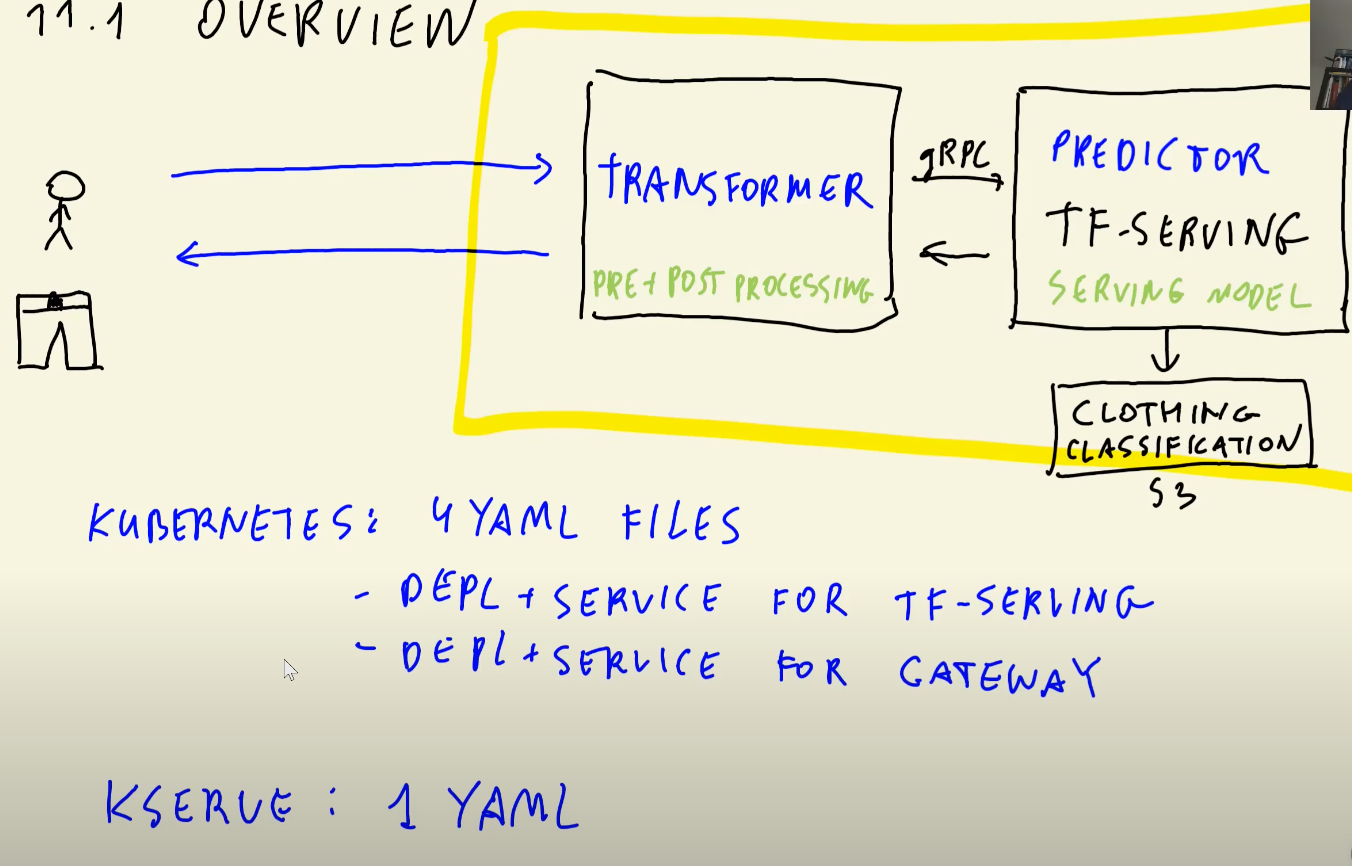 11.1 OVERVIEW
TRANSFORMER
PRE + POST PROCESSING
gRPC
PREDICTOR
TF-SERVING
SERVING MODEL
CLOTHING
CLASSIFICATION
S3
KUBERNETES: 4 YAML FILES
- DEPL + SERVICE FOR TF-SERVING
- DEPL + SERVICE FOR GATEWAY
KSERVE: 1 YAML